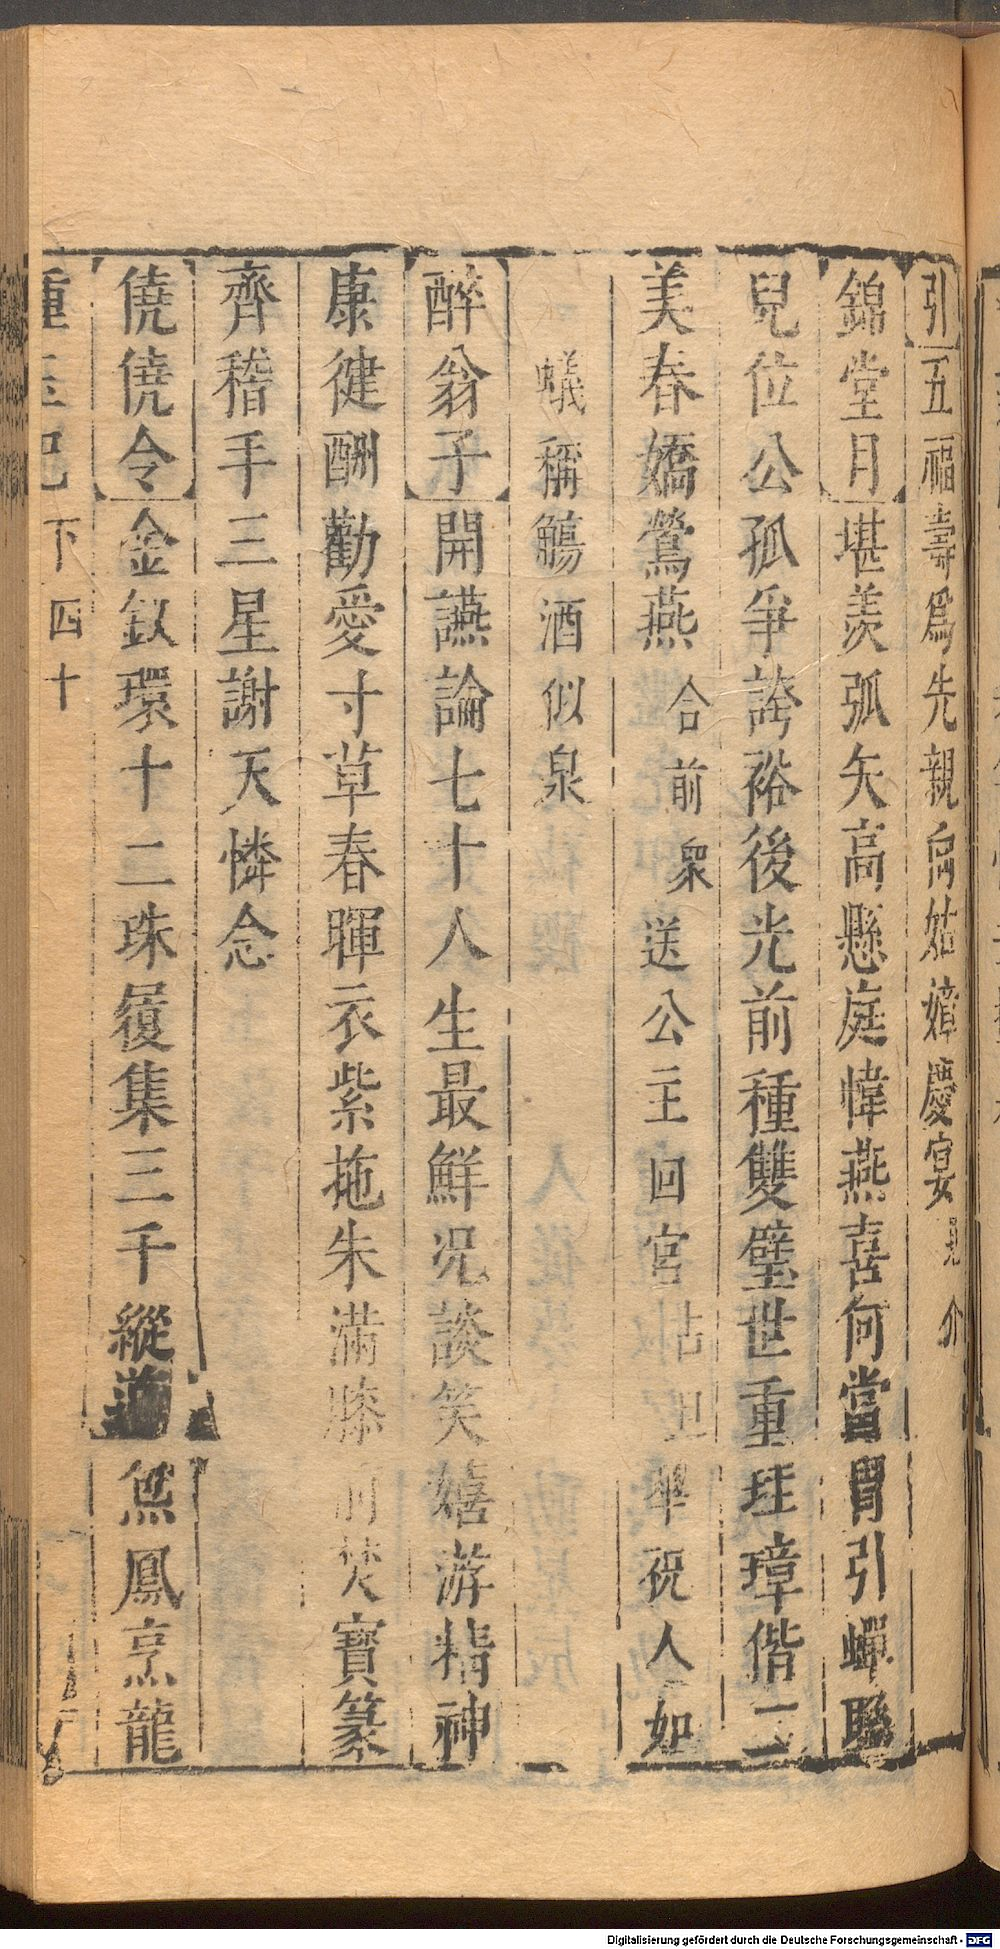 引五福壽爲先親㑨姑嫜慶宴 介
錦堂月堪羨弧矢高懸庭幃燕喜何當冑引蟬聯
兒位公孤爭誇裕後光前種雙璧世重珪璋偕二
美春嬌鶯燕合前衆送公主回宮 畢祝人如
蟻稱觴酒似泉
醉翁子開讌論七十人生最鮮况談笑嬉游精神
康徤酬勸愛寸草春暉衣紫拖朱滿膝前焚寶篆
齊稽手三星謝天憐念
僥僥令金釵環十二珠履集三千縱 鳳烹龍
重玉記 下 四十
Digitalisierung gefördert durch die Deutsche Forschungsgemeinschaft - DFG